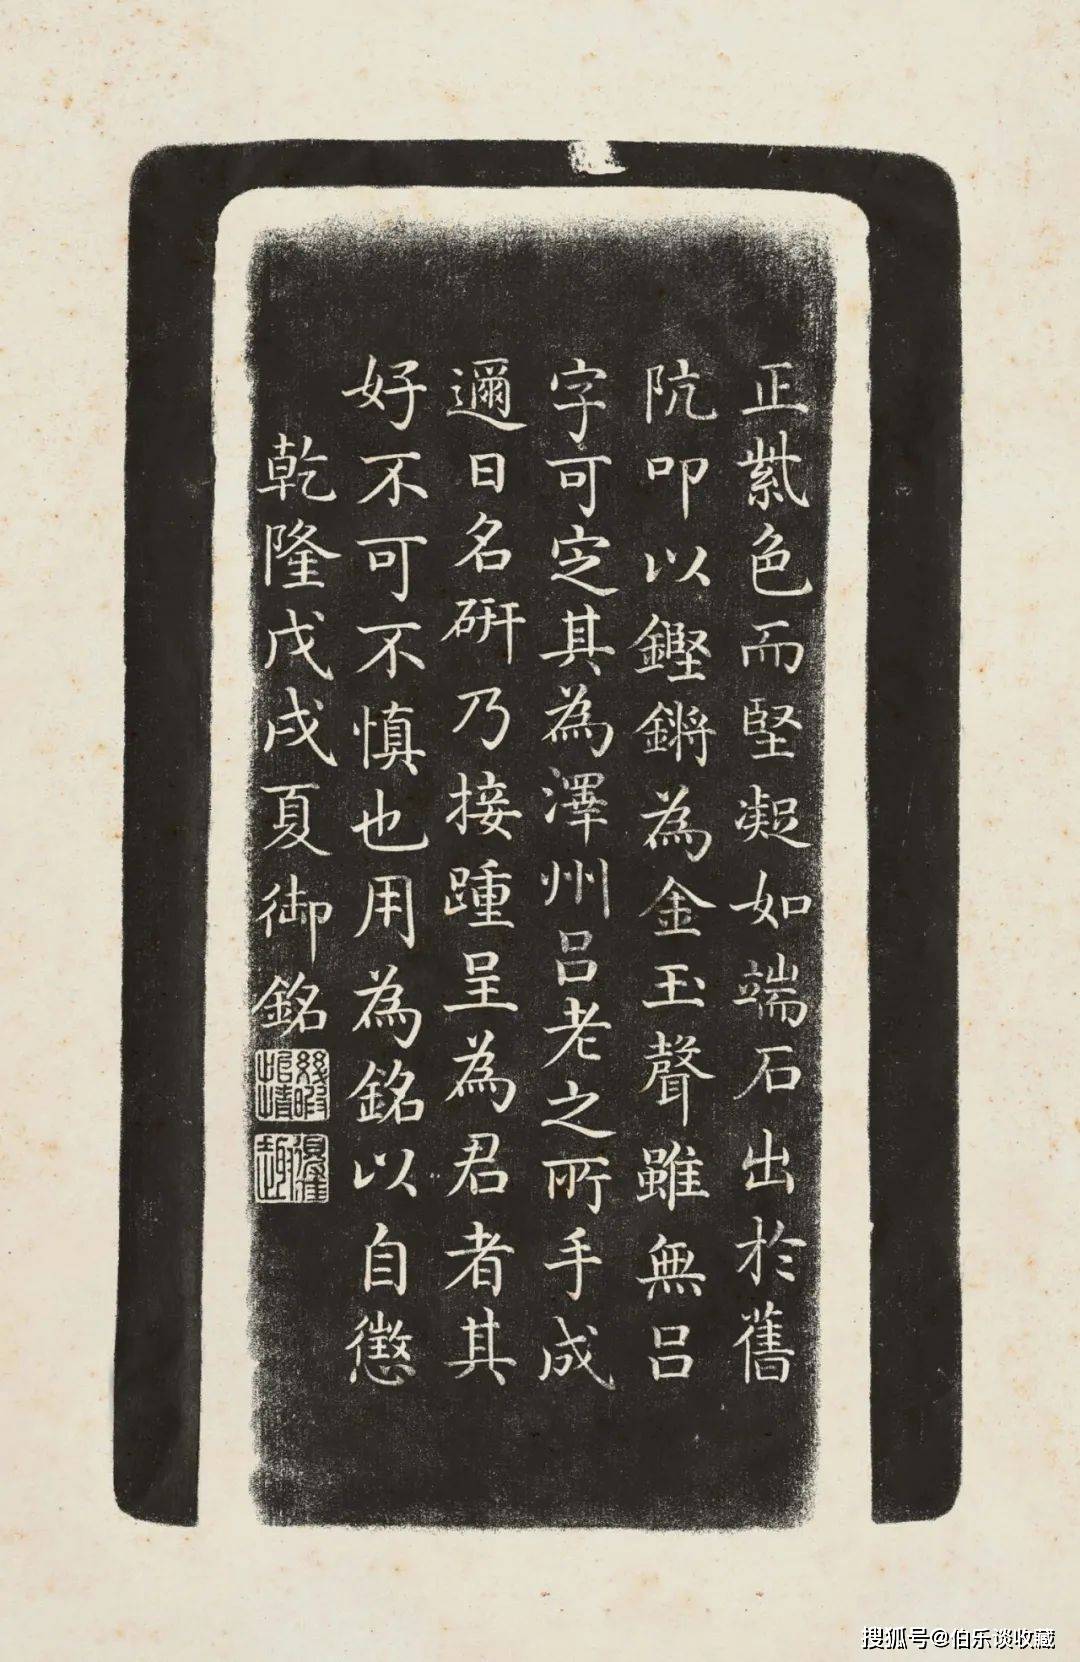 正紫色而堅凝如端石出於舊
阬叩以鏗鏘為金玉聲雖無呂
字可定其為澤州呂老之所手成
邇日名硏乃接踵呈為君者其
好不可不慎也用為銘以自懲
乾隆戊戌夏御銘
幾暇怡情
得佳趣
搜狐号@伯乐谈收藏